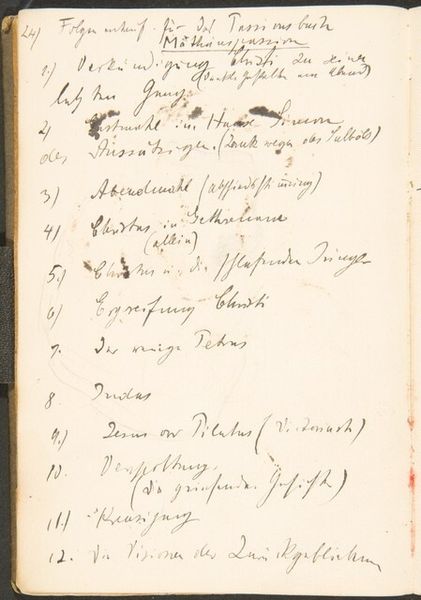 24) Folgen entwurf für das Passionsbuch
Mathäuspassion
1.) Verkündigung Christi zu seinem
(Dunkle Gestalten am Abend)
letzten Gang
2) Gastmahl im Hause Simon
des Aussätzigen. (Zank wegen des Salböls)
3) Abendmahl (abschiedsstimmung)
4) Christus in Gethsemane
(allein)
5.) Christus u. die schlafenden Jünger
6) Ergreifung Christi
7. Der weinige Petrus
8. Judas
9.) Jesus vor Pilatus
10. Verspottung.
(Die grinsenden Gesichter)
11.) Kreuzigung
12. Die Visionen der Zurückgebliebenen